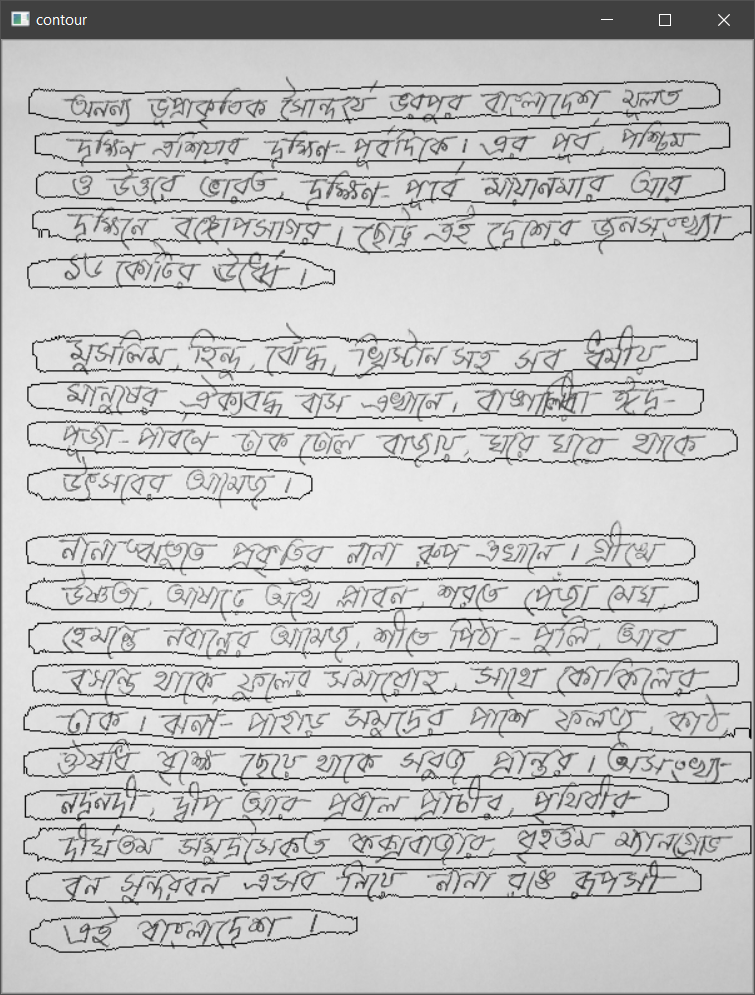 contour
অনন্য ভূপ্রাকৃতিক সৌন্দর্যে ভরপুর বাংলাদেশ মূলত
দক্ষিন এশিয়ার দক্ষিণ-পূর্বদিকে। এর পূর্ব, পশ্চিম
ও উত্তরে ভারত, দক্ষিন-পূর্বে মায়ানমার আর
দক্ষিনে বঙ্গোপসাগর। ছোট্ট এই দেশের জনসংখ্যা
১৬ কোটির ঊর্ধ্বে।
মুসলিম, হিন্দু, বৌদ্ধ, খ্রিস্টান সহ সব ধর্মীয়
মানুষের ঐক্যবদ্ধ বাস এখানে। ঈদ-
পূজা-পাবনে ঢাক ঢোল বাজায়, ঘরে ঘরে থাকে
উৎসবের আমেজ।
নানা ঋতুতে প্রকৃতির নানা রুপ এখানে। গ্রীষ্মে
উষ্ণতা, আষাঢ়ে অথৈ প্লাবন, শরতে পেঁজা মেঘ,
হেমন্তে নবান্নের আমেজ, শীতে পিঠা-পুলি, আর
বসন্তে থাকে ফুলের সমারোহ, সাথে কোকিলের
ডাক। ঝর্না-পাহাড় সমুদ্রের পাশে ফলজ, কাঠ,
ঔষধি বৃক্ষে ছেয়ে থাকে সবুজ প্রান্তর। অসংখ্য
নদনদী, দ্বীপ আর প্রবাল প্রাচীর, পৃথিবীর
দীর্ঘতম সমুদ্রসৈকত কক্সবাজার, বৃহত্তম ম্যানগ্রোভ
বন সুন্দরবন এসব নিয়ে নানা রঙে রূপসী
এই বাংলাদেশ।